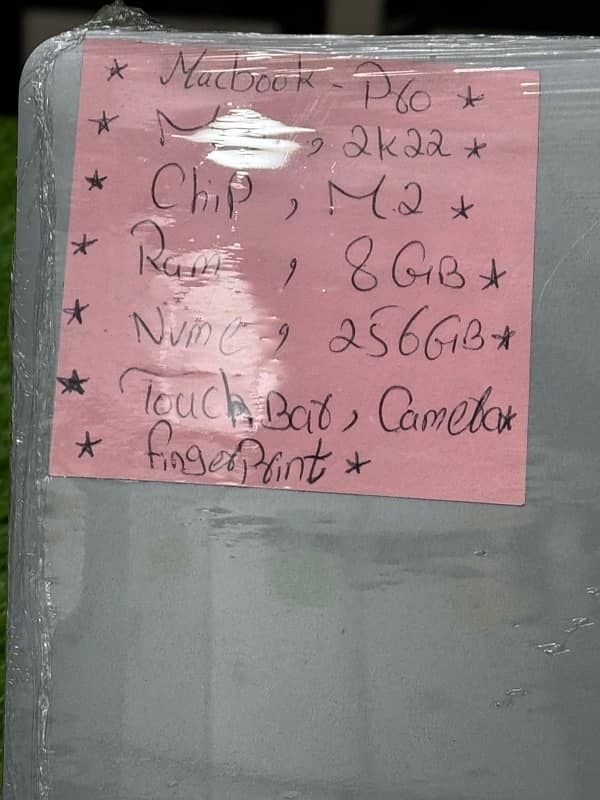 ★ Macbook - Pro ★
★ , 2K22 ★
★ Chip , M.2 ★
★ Ram , 8 GB ★
★ Nvme , 256GB ★
★ Touch Bar, Camera ★
★ fingerPrint ★